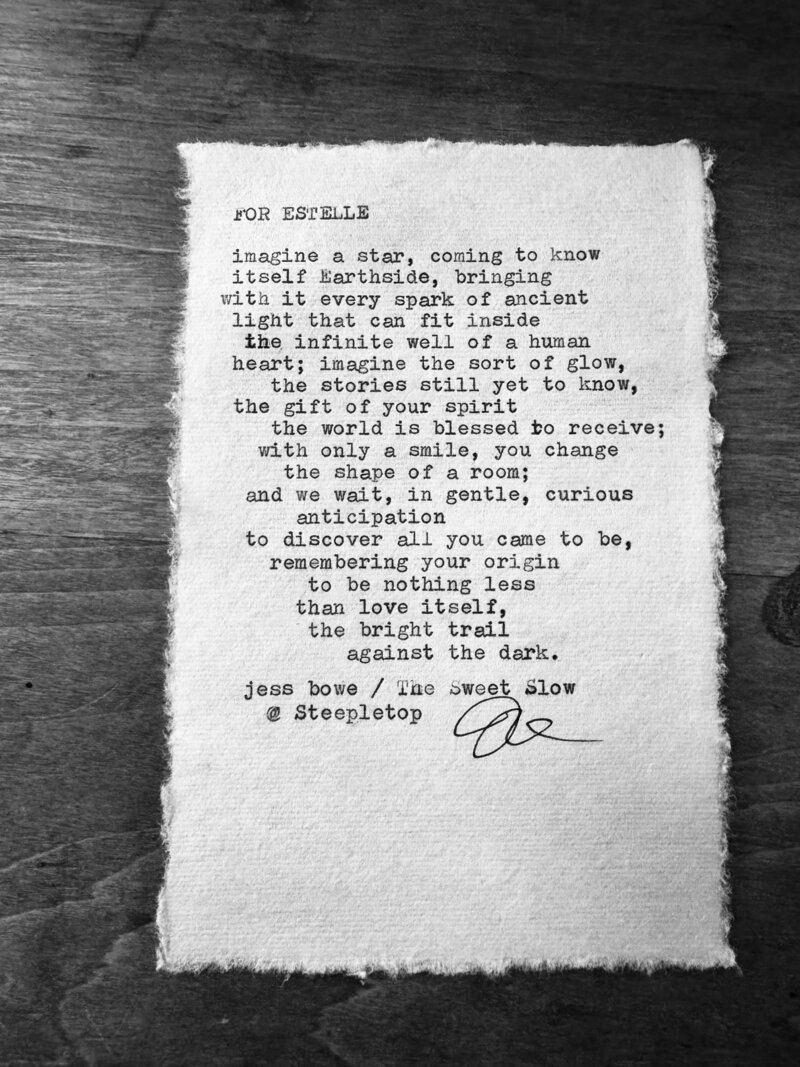 FOR ESTELLE
imagine a star, coming to know
itself Earthside, bringing
with it every spark of ancient
light that can fit inside
the infinite well of a human
heart; imagine the sort of glow,
the stories still yet to know,
the gift of your spirit
the world is blessed to receive;
with only a smile, you change
the shape of a room;
and we wait, in gentle, curious
anticipation
to discover all you came to be,
remembering your origin
to be nothing less
than love itself,
the bright trail
against the dark.
jess bowe / The Sweet Slow
@ Steepletop